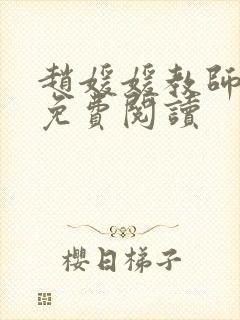 趙媛媛教師
免費閱讀
櫻日梯子